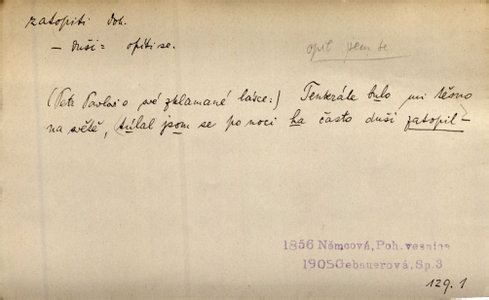 zatopiti dok.
— duši = opíti se.
opil jsem se
(Petr Pavlovi o své zklamané lásce:) Tenkráte bulo mi těsno
na světě, túlal jsom se po noci ba často duši zatopil —
1856 Němcová, Poh. vesnice
1905 Gebauerová, Sp. 3
129. 1